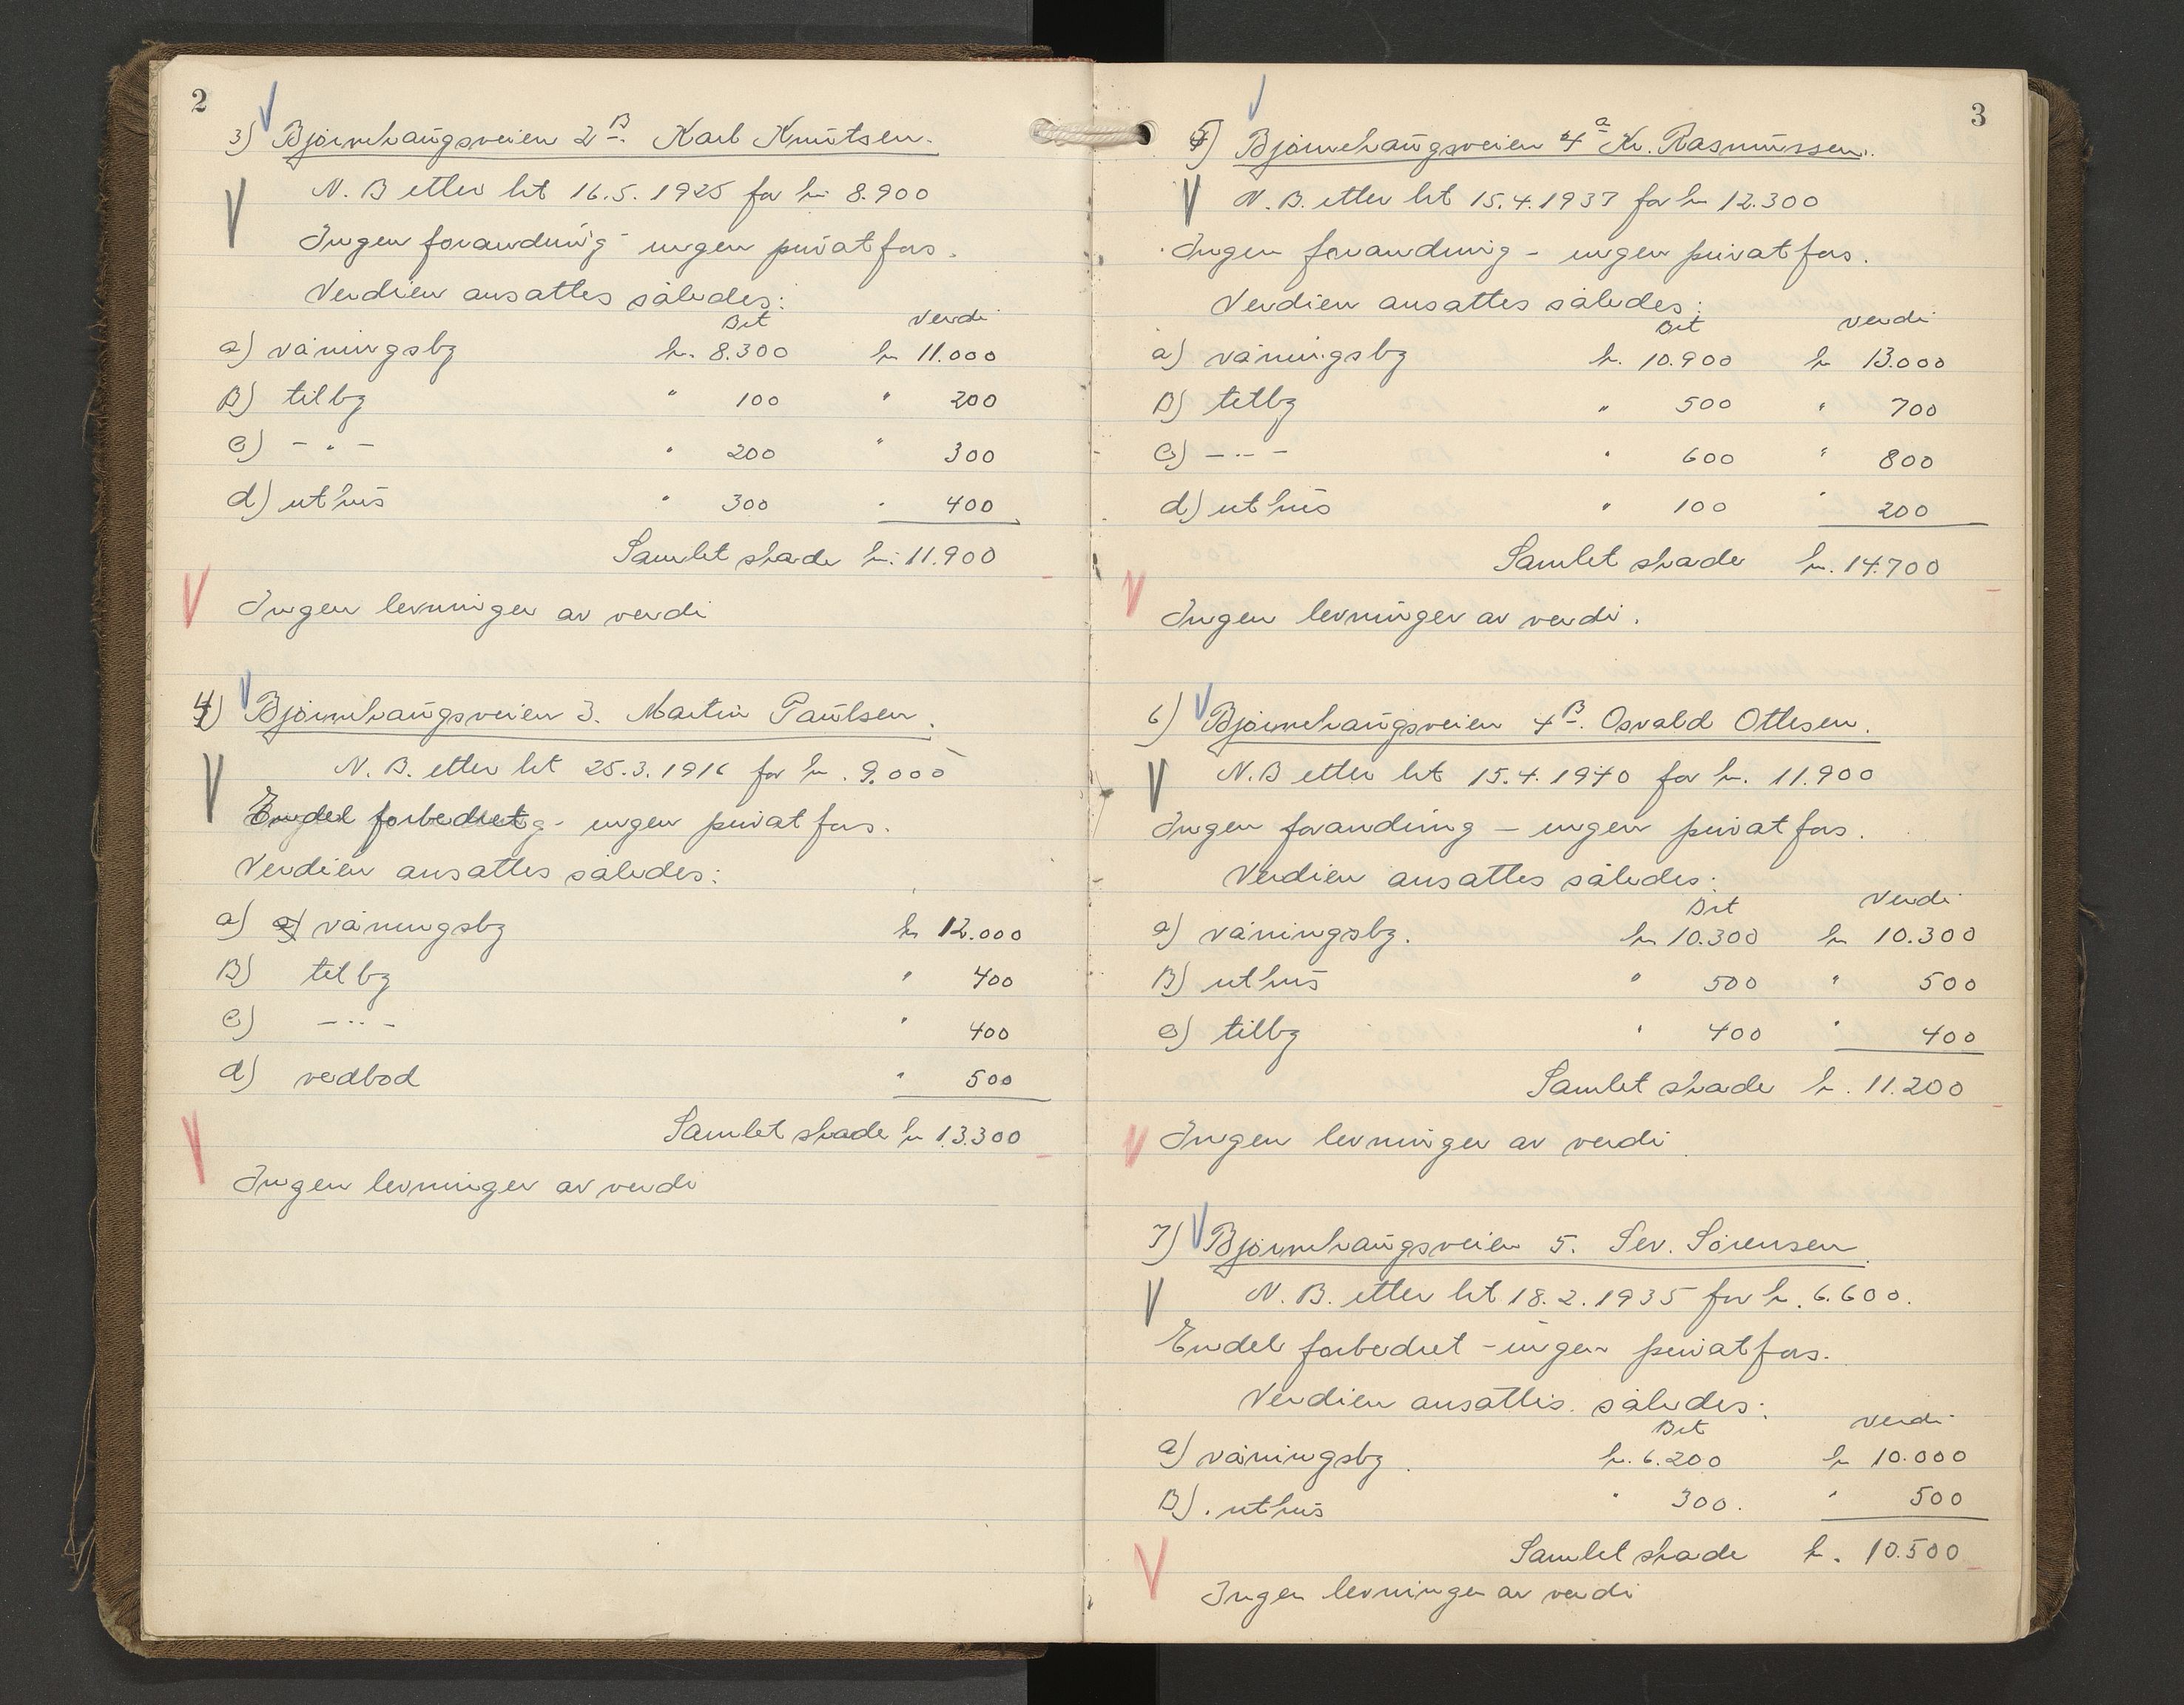 2
3) Bjørnehaugsveien 2B. Karl Knutsen.
N. B etter lst 16.5.1925 for kr 8.900
Ingen forandring - ingen privatfors.
Verdien ansattes således:
Brt Verdi
a) våningsbg kr. 8.300 kr 11.000
B) tilbg " 100 " 200
c) - " - " 200 " 300
d) uthus " 300 " 400
Samlet skade kr. 11.900
Ingen levninger av verdi
4) Bjørnehaugsveien 3. Martin Paulsen.
N. B. etter lst 25.3.1916 for kr. 9.000
Endel forbedret - ingen privatfors.
Verdien ansattes således:
a) a) våningsbg kr 12.000
B) tilbg " 400
c) - " - " 400
d) vedbod " 500
Samlet skade kr 13.300
Ingen levninger av verdi
3
5) Bjørnehaugsveien 4a Kr. Rasmussen.
N. B. etter lst 15.4.1937 for kr 12.300
Ingen forandring - ingen privatfors.
Verdien ansattes således:
Brt verdi
a) våningsbg kr. 10.900 kr 13.000
B) tilbg " 500 " 700
c) - " - " 600 " 800
d) uthus " 100 " 200
Samlet skade kr. 14.700
Ingen levninger av verdi.
6) Bjørnehaugsveien 4B. Osvald Ottesen.
N. B etter lst 15.4.1940 for kr. 11.900
Ingen forandring - ingen privatfors.
Verdien ansattes således:
Brt Verdi
a) våningsbg. kr 10.300 kr 10.300
B) uthus " 500 " 500
c) tilbg " 400 " 400
Samlet skade kr. 11.200
Ingen levninger av verdi
7) Bjørnehaugsveien 5. Sev. Sørensen
N. B. etter lst 18.2.1935 for kr. 6.600.
Endel forbedret - ingen privatfors.
Verdien ansattes således:
Brt verdi
a) våningsbg. kr. 6.200 kr 10.000
B). uthus " 300. " 500
Samlet skade kr. 10.500
Ingen levninger av verdi